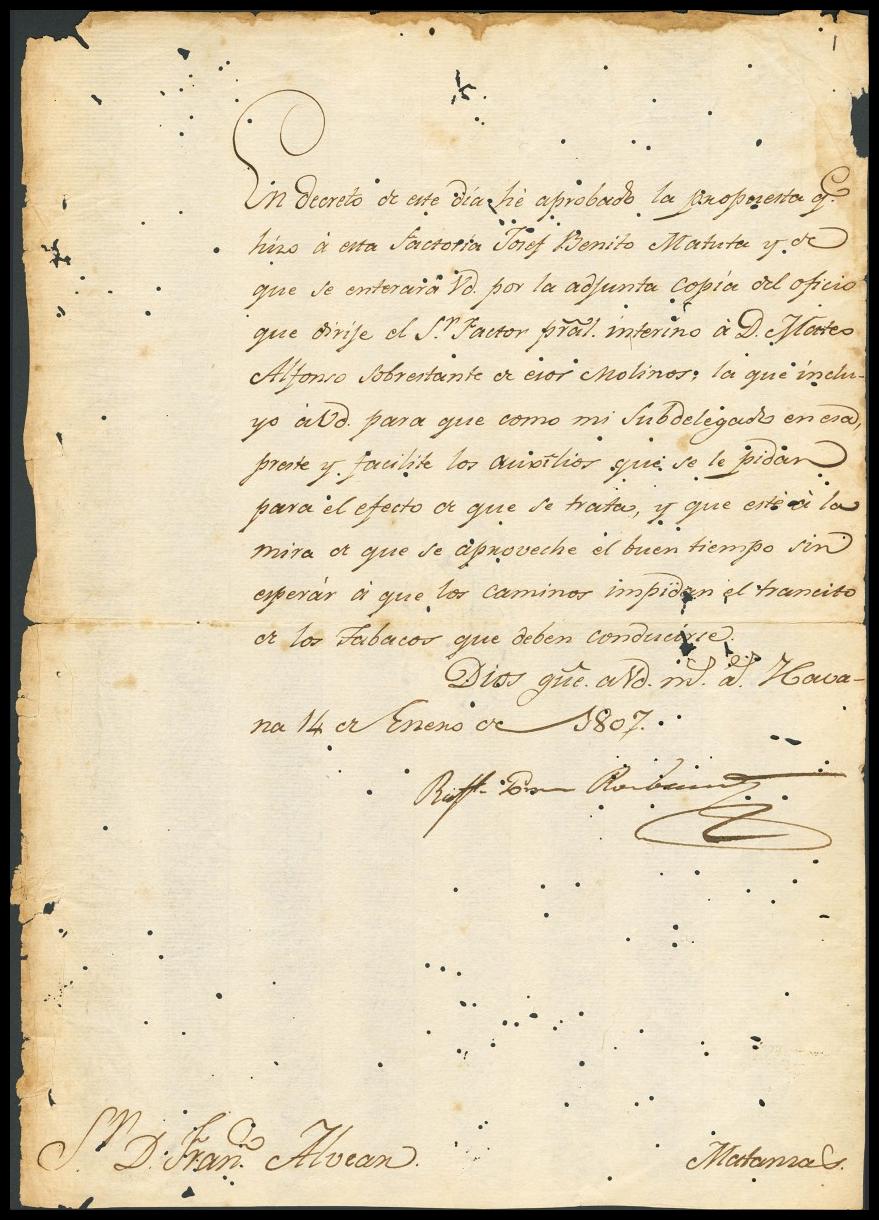 En decreto de este día hé aprobado la propuesta q.e
hizo á esta Factoría Josef Benito Matuta y de
que se enterará Vd. por la adjunta copia del oficio
que dirije el S.or Factor prãl. interino à D. Mateo
Alfonso Sobrestante de esos Molinos; la que inclu-
yo à Vd. para que como mi Subdelegado en esa,
preste y facilite los auxîlios que se le pidan
para el efecto de que se trata, y que esté à la
mira de que se aproveche el buen tiempo sin
esperár à que los caminos impidan el trancito
de los Tabacos que deben conducirse.
Dios güe. a Vd. m.s a.s Hava-
na 14 de Enero de 1807.
Raf.l
S.or D. Fran.co Alvear.
Matanzas.